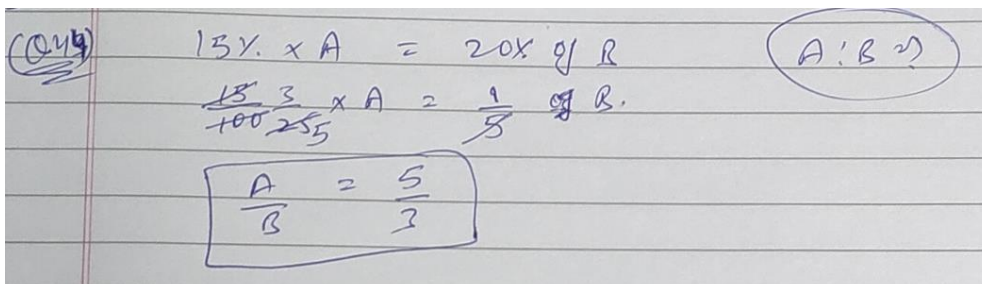 (Q44) 15% × A = 20% of B A:B=?
15/100 3/25 5 × A = 1/5 of B.
A/B = 5/3